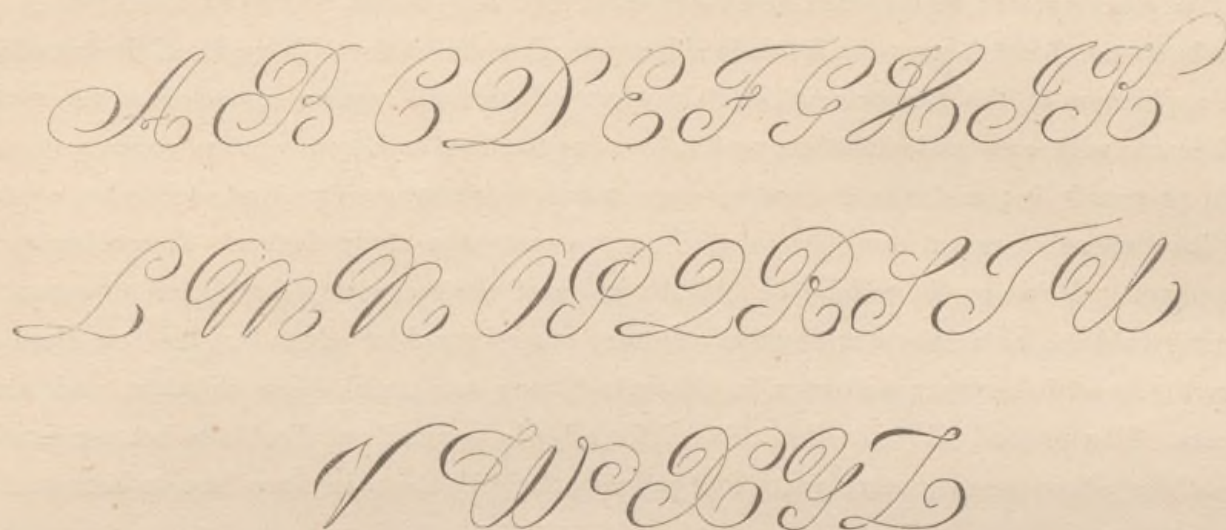 A B C D E F G H I K
L M N O P Q R S T U
V W X Y Z